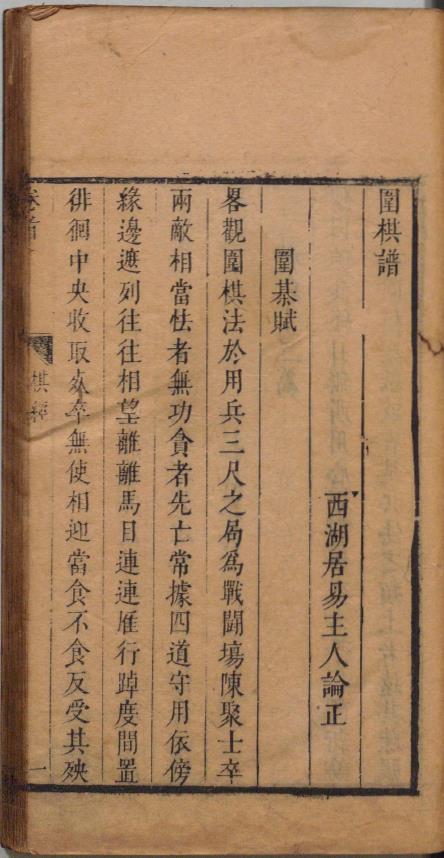 圍棋譜
西湖居易主人論正
圍棊賦
畧觀圍棋法於用兵三尺之局為戰鬪塲陳聚士卒
兩敵相當怯者無功貪者先亡常據四道守用依傍
緣邊遮列往往相望離離馬目連連雁行踔度間置
徘徊中央收取死卒無使相迎當食不食反受其殃
卷首
棋經
一